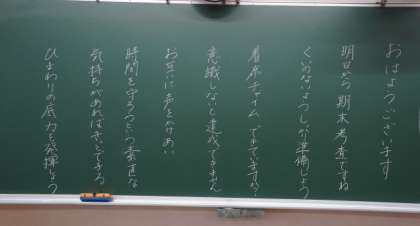 おはようございます
明日から期末考査ですね
くいのないようしっかり準備しよう
着席チャイムできていますか?
意識しないと達成できません
お互いに声をかけあい
時間を守ろうという素直な
気持ちがあればきっとできる
ひまわりの底力を発揮しよう